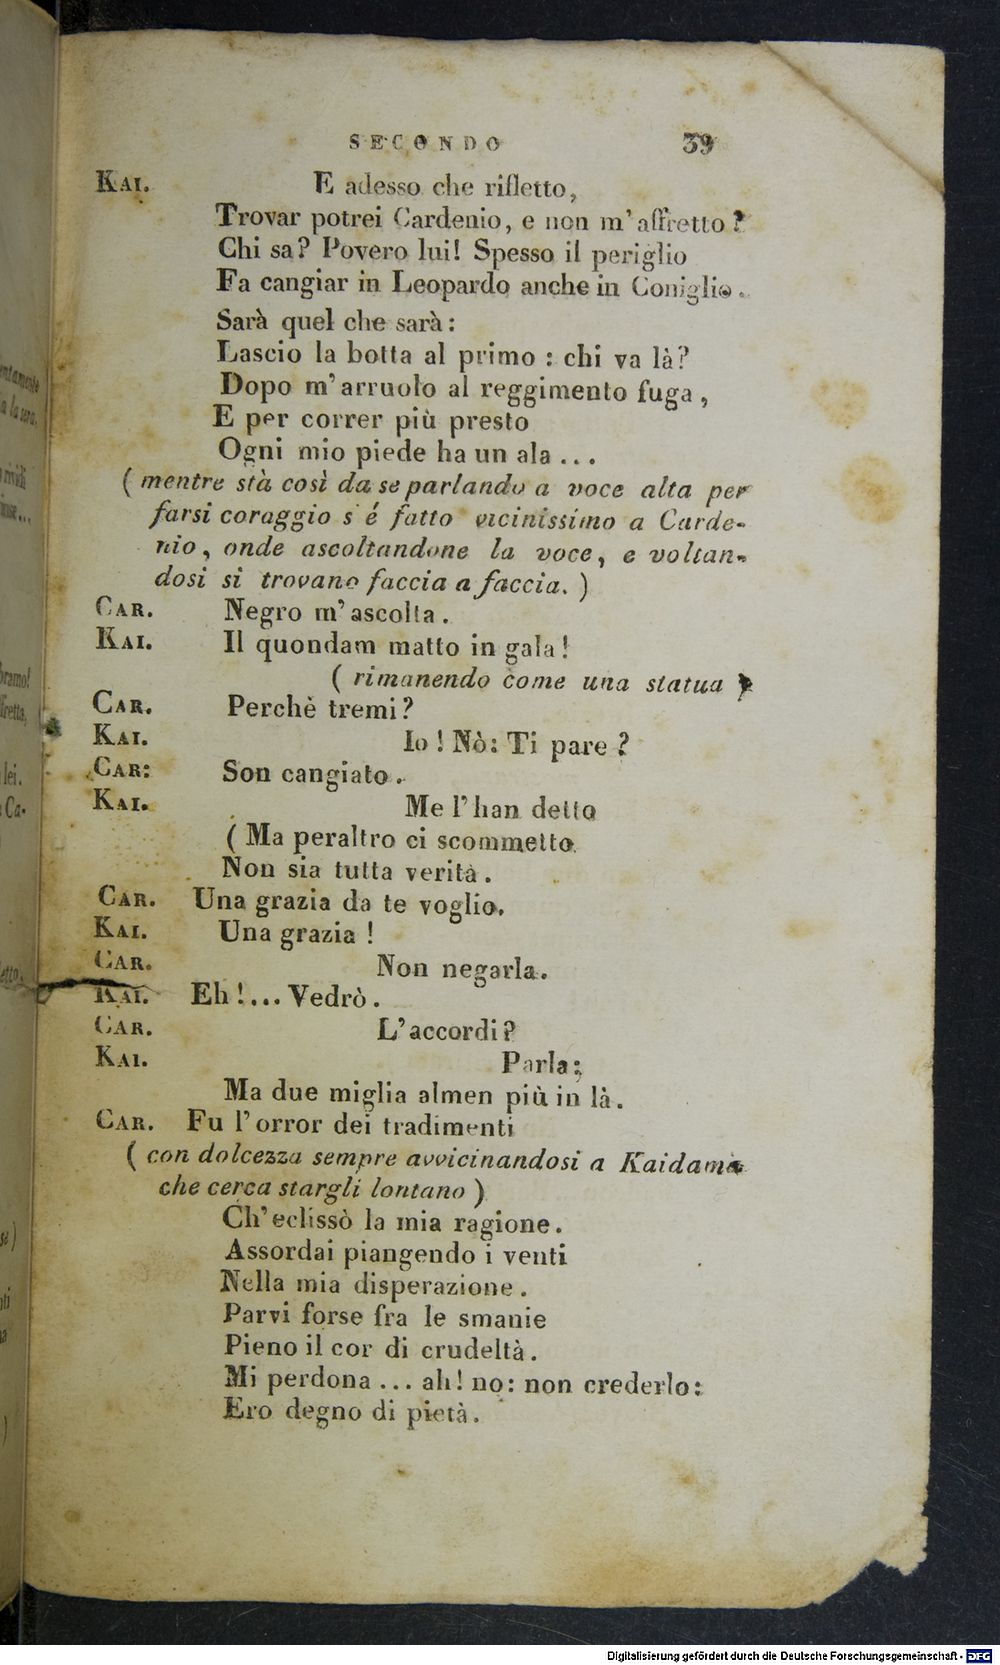 SECONDO 39
KAI. E adesso che rifletto,
Trovar potrei Cardenio, e non m'affretto?
Chi sa? Povero lui! Spesso il periglio
Fa cangiar in Leopardo anche in Coniglio.
Sarà quel che sarà:
Lascio la botta al primo: chi va là?
Dopo m'arruolo al reggimento fuga,
E per correr più presto
Ogni mio piede ha un ala...
(mentre stà così da se parlando a voce alta per
farsi coraggio s'é fatto vicinissimo a Carde-
nio, onde ascoltandone la voce, e voltan-
dosi si trovano faccia a faccia.)
CAR. Negro m'ascolta.
KAI. Il quondam matto in gala!
(rimanendo come una statua)
CAR. Perchè tremi?
KAI. Io! Nò: Ti pare?
CAR: Son cangiato.
KAI. Me l'han detto
(Ma peraltro ci scommetto
Non sia tutta verità.
CAR. Una grazia da te voglio.
KAI. Una grazia!
CAR. Non negarla.
KAI. Eh!... Vedrò.
CAR. L'accordi?
KAI. Parla;
Ma due miglia almen più in là.
CAR. Fu l'orror dei tradimenti
(con dolcezza sempre avvicinandosi a Kaidamà
che cerca stargli lontano)
Ch'eclissò la mia ragione.
Assordai piangendo i venti
Nella mia disperazione.
Parvi forse fra le smanie
Pieno il cor di crudeltà.
Mi perdona... ah! no: non crederlo:
Ero degno di pietà.
Digitalisierung gefördert durch die Deutsche Forschungsgemeinschaft - DFG